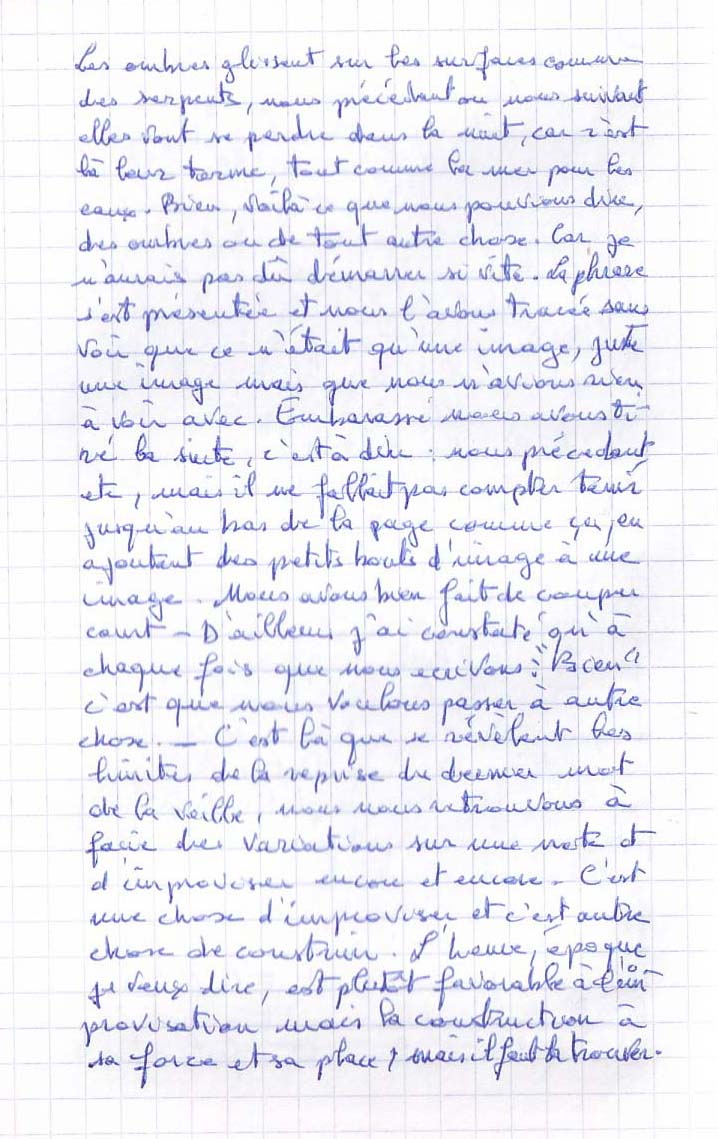 Les ombres glissent sur les surfaces comme
des serpents, nous précédant ou nous suivant
elles vont se perdre dans la nuit, car c'est
là leur terme, tout comme la mer pour les
eaux. Bien, voilà ce que nous pouvions dire,
des ombres ou de tout autre chose. Car je
n'aurais pas dû démarrer si vite. La phrase
s'est présentée et nous l'avons tracée sans
voir que ce n'était qu'une image, juste
une image mais que nous n'avions rien
à voir avec. Embarassé nous avons ti-
ré la suite, c'est à dire : nous précédant
etc, mais il ne fallait pas compter tenir
jusqu'au bas de la page comme ça, en
ajoutant des petits bouts d'image à une
image. Nous avons bien fait de couper
court - D'ailleurs j'ai constaté qu'à
chaque fois que nous écrivons : "Bien"
c'est que nous voulons passer à autre
chose. - C'est là que se révèlent les
limites de la reprise du dernier mot
de la veille, nous nous retrouvons à
faire des variations sur une note et
d'improviser encore et encore. C'est
une chose d'improviser et c'est autre
chose de construire. L'heure, époque
je veux dire, est plutôt favorable à l'im
provisation mais la construction à
sa force et sa place, mais il faut la trouver.